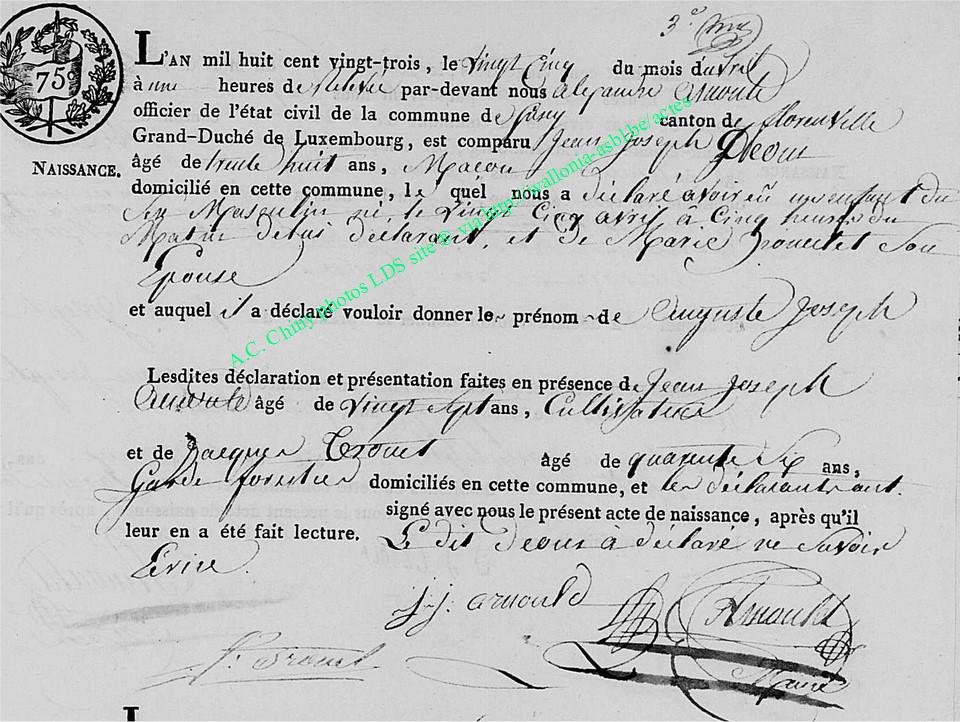 75c
NAISSANCE.
L'AN mil huit cent vingt-trois, le vingt Cinq du mois d'avril
à une heures de relevée par-devant nous alexandre arnould
officier de l'état civil de la commune de Chiny canton de florenville
Grand-Duché de Luxembourg, est comparu Jean Joseph Deom
âgé de trente huit ans, Maçon
domicilié en cette commune, le quel nous a déclaré avoir eu un enfant du
Sex Masculin né, le vingt Cinq avril à Cinq heures du
Matin de lui déclarant, et de Marie Son
Epouse
et auquel il a déclaré vouloir donner le prénom de auguste Joseph
Lesdites déclaration et présentation faites en présence de Jean Joseph
arnould âgé de vingt sept ans, Cultivateur
et de Jacques Trouet âgé de quarente Six ans,
Garde forestier domiciliés en cette commune, et les déclarants ont
signé avec nous le présent acte de naissance, après qu'il
leur en a été fait lecture. Le dit deom à déclaré ne Savoir
Ecrire
j. j. arnould
Arnould
Maire
j. Trouet
A.C. Chiny photos LDS site© via http://wallonia-asbl.be/actes
L